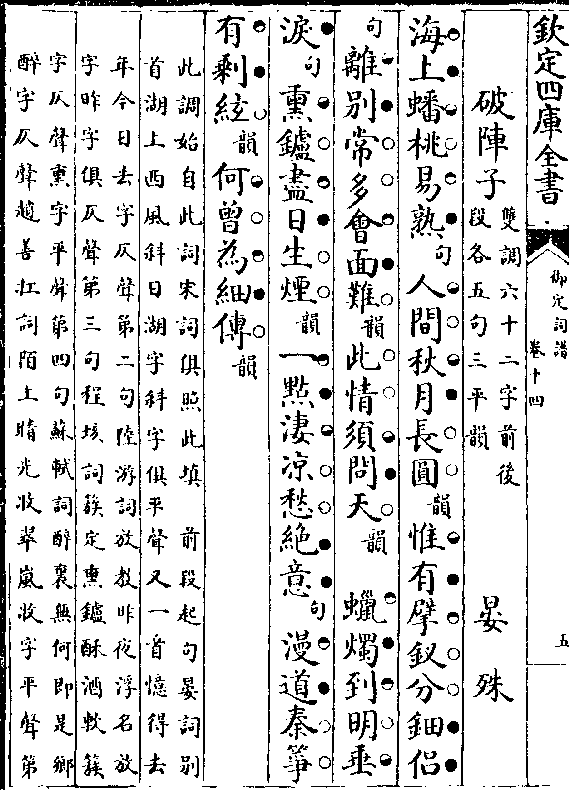 欽定四庫全書
御定詞譜
卷十四
五
破陣子
雙調六十二字前後
段各五句三平韻
晏殊
海上蟠桃易熟句人間秋月長圓韻惟有擘釵分鈿侶
句離別常多會面難韻此情須問天韻 蠟燭到明垂
淚句熏鑪盡日生煙韻一點淒涼愁絶意句漫道秦箏
有剩絃韻何曾為細傳韻
此調始自此詞宋詞俱照此填 前段起句晏詞別
首湖上西風斜日湖字斜字俱平聲又一首憶得去
年今日去字仄聲第二句陸游詞放教昨夜浮名放
字昨字俱仄聲第三句程垓詞簇定熏鑪酥酒軟簇
字仄聲熏字平聲第四句蘇軾詞醉裏無何即是鄉
醉字仄聲趙善扛詞陌上晴光收翠嵐收字平聲第